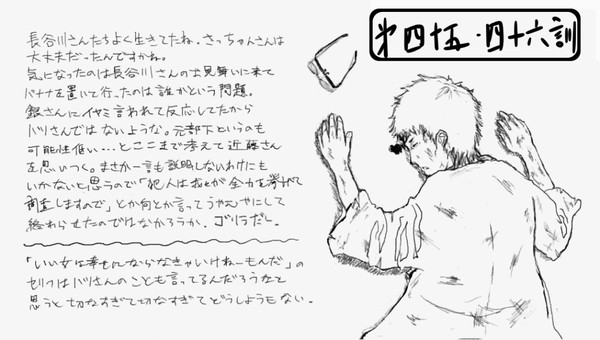 第四十五・四十六訓
長谷川さんたちよく生きてたね。さっちゃんさんは
大丈夫だったんですかね。
気になったのは長谷川さんのお見舞いに来て
バナナを置いて行ったのは誰かという問題。
銀さんにイヤミ言われて反応してたから
バリさんではないような。元部下というのも
可能性低い…とここまで考えて近藤さん
を思いつく。まさか一言も説明しないわけにも
いかないと思うので「犯人は我々が全力を挙げて
捜査しますので」とか何とか言ってうやむやにして
終わらせたのではなかろうか。ゴリラだし。
「いい女は幸せにならなきゃいけねーもんだ」の
セリフはバリさんのことも言ってるんだろうなと
思うと切なすぎて切なすぎてどうしようもない。